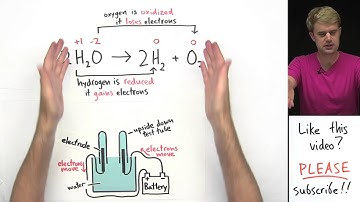 oxygen is oxidized
it loses electrons
+1 -2 0 0
2H₂O → 2H₂ + O₂
hydrogen is reduced
it gains electrons
upside down
test tube
electrode
electrons
move
electrons
move
water
Battery
Like this
video?
PLEASE
subscribe!!